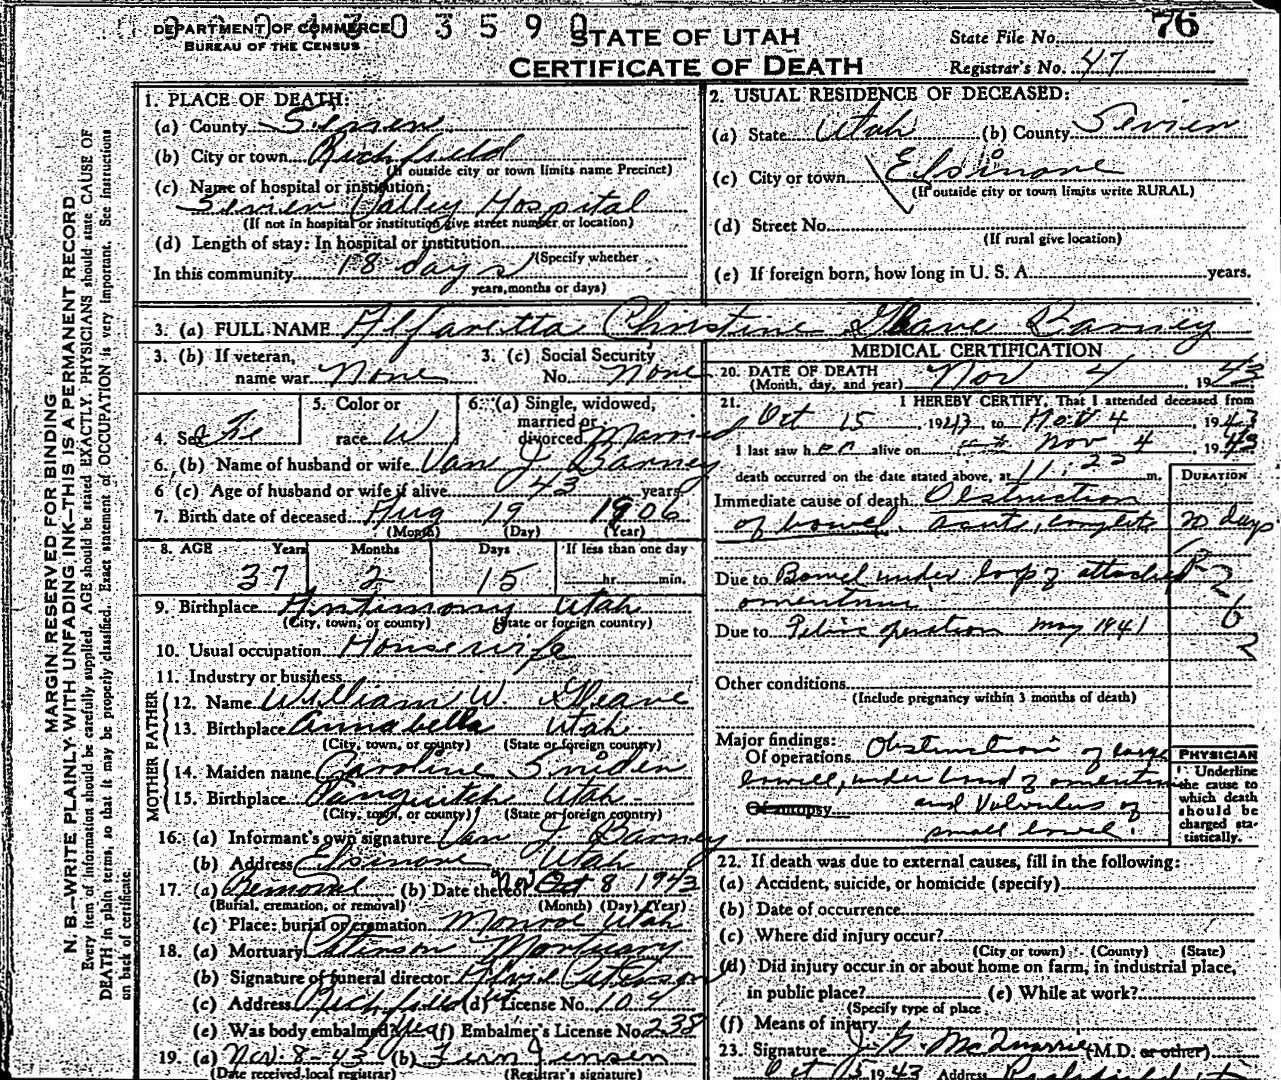 DEPARTMENT OF COMMERCE
BUREAU OF THE CENSUS
0 0 0 4 3 0 3 5 9 0
STATE OF UTAH
CERTIFICATE OF DEATH
State File No. 76
Registrar's No. 47
MARGIN RESERVED FOR BINDING
N. B.—WRITE PLAINLY, WITH UNFADING INK—THIS IS A PERMANENT RECORD
Every item of information should be carefully supplied. AGE should be stated EXACTLY. PHYSICIANS should state CAUSE OF
DEATH in plain terms, so that it may be properly classified. Exact statement of OCCUPATION is very important. See instructions
on back of certificate.
1. PLACE OF DEATH:
(a) County Sevier
(b) City or town Richfield
(If outside city or town limits name Precinct)
(c) Name of hospital or institution:
Sevier Valley Hospital
(If not in hospital or institution give street number or location)
(d) Length of stay: In hospital or institution
(Specify whether
In this community 18 days
years, months or days)
2. USUAL RESIDENCE OF DECEASED:
(a) State Utah (b) County Sevier
(c) City or town Elsinore
(If outside city or town limits write RURAL)
(d) Street No.
(If rural give location)
(e) If foreign born, how long in U. S. A. years.
3. (a) FULL NAME Alfaretta Christine Gleave Barney
3. (b) If veteran, name war None
3. (c) Social Security No. None
4. Sex Fe
5. Color or race W
6. (a) Single, widowed, married or divorced Married
6. (b) Name of husband or wife Van J Barney
6 (c) Age of husband or wife if alive 43 years
7. Birth date of deceased Aug 19 1906
(Month) (Day) (Year)
8. AGE Years Months Days If less than one day
37 2 15 hr. min.
9. Birthplace Antimony Utah
(City, town, or county) (State or foreign country)
10. Usual occupation Housewife
11. Industry or business
FATHER
12. Name William W. Gleave
13. Birthplace Annabella Utah
(City, town, or county) (State or foreign country)
MOTHER
14. Maiden name Caroline
15. Birthplace Panguitch Utah
(City, town, or county) (State or foreign country)
16. (a) Informant's own signature Van J Barney
(b) Address Elsinore Utah
17. (a) Removal (b) Date thereof Nov Oct 8 1943
(Burial, cremation, or removal) (Month) (Day) (Year)
(c) Place: burial or cremation Monroe Utah
18. (a) Mortuary Mortuary
(b) Signature of funeral director
(c) Address Richfield (d) License No. 104
(e) Was body embalmed? yes (f) Embalmer's License No. 238
19. (a) Nov. 8-43 (b) Fern Jensen
(Date received local registrar) (Registrar's signature)
MEDICAL CERTIFICATION
20. DATE OF DEATH
(Month, day, and year) Nov 4, 1943
21. I HEREBY CERTIFY, That I attended deceased from
Oct 15, 1943, to Nov 4, 1943
I last saw her alive on Nov 4, 1943
death occurred on the date stated above, at m.
DURATION
Immediate cause of death Obstruction
of bowel. acute, complete 20 days
Due to Bowel under loop of attached
omentum
Due to Pelvic operation may 1941
Other conditions
(Include pregnancy within 3 months of death)
Major findings:
Of operations Obstruction of large
bowell, under band of omentum
Of autopsy and Volvulus of
small bowel.
PHYSICIAN
Underline the cause to which death should be charged statistically.
22. If death was due to external causes, fill in the following:
(a) Accident, suicide, or homicide (specify)
(b) Date of occurrence
(c) Where did injury occur?
(City or town) (County) (State)
(d) Did injury occur in or about home on farm, in industrial place,
in public place? (e) While at work?
(Specify type of place
(f) Means of injury
23. Signature J. G. McQuarrie (M.D. or other)
1943 Address